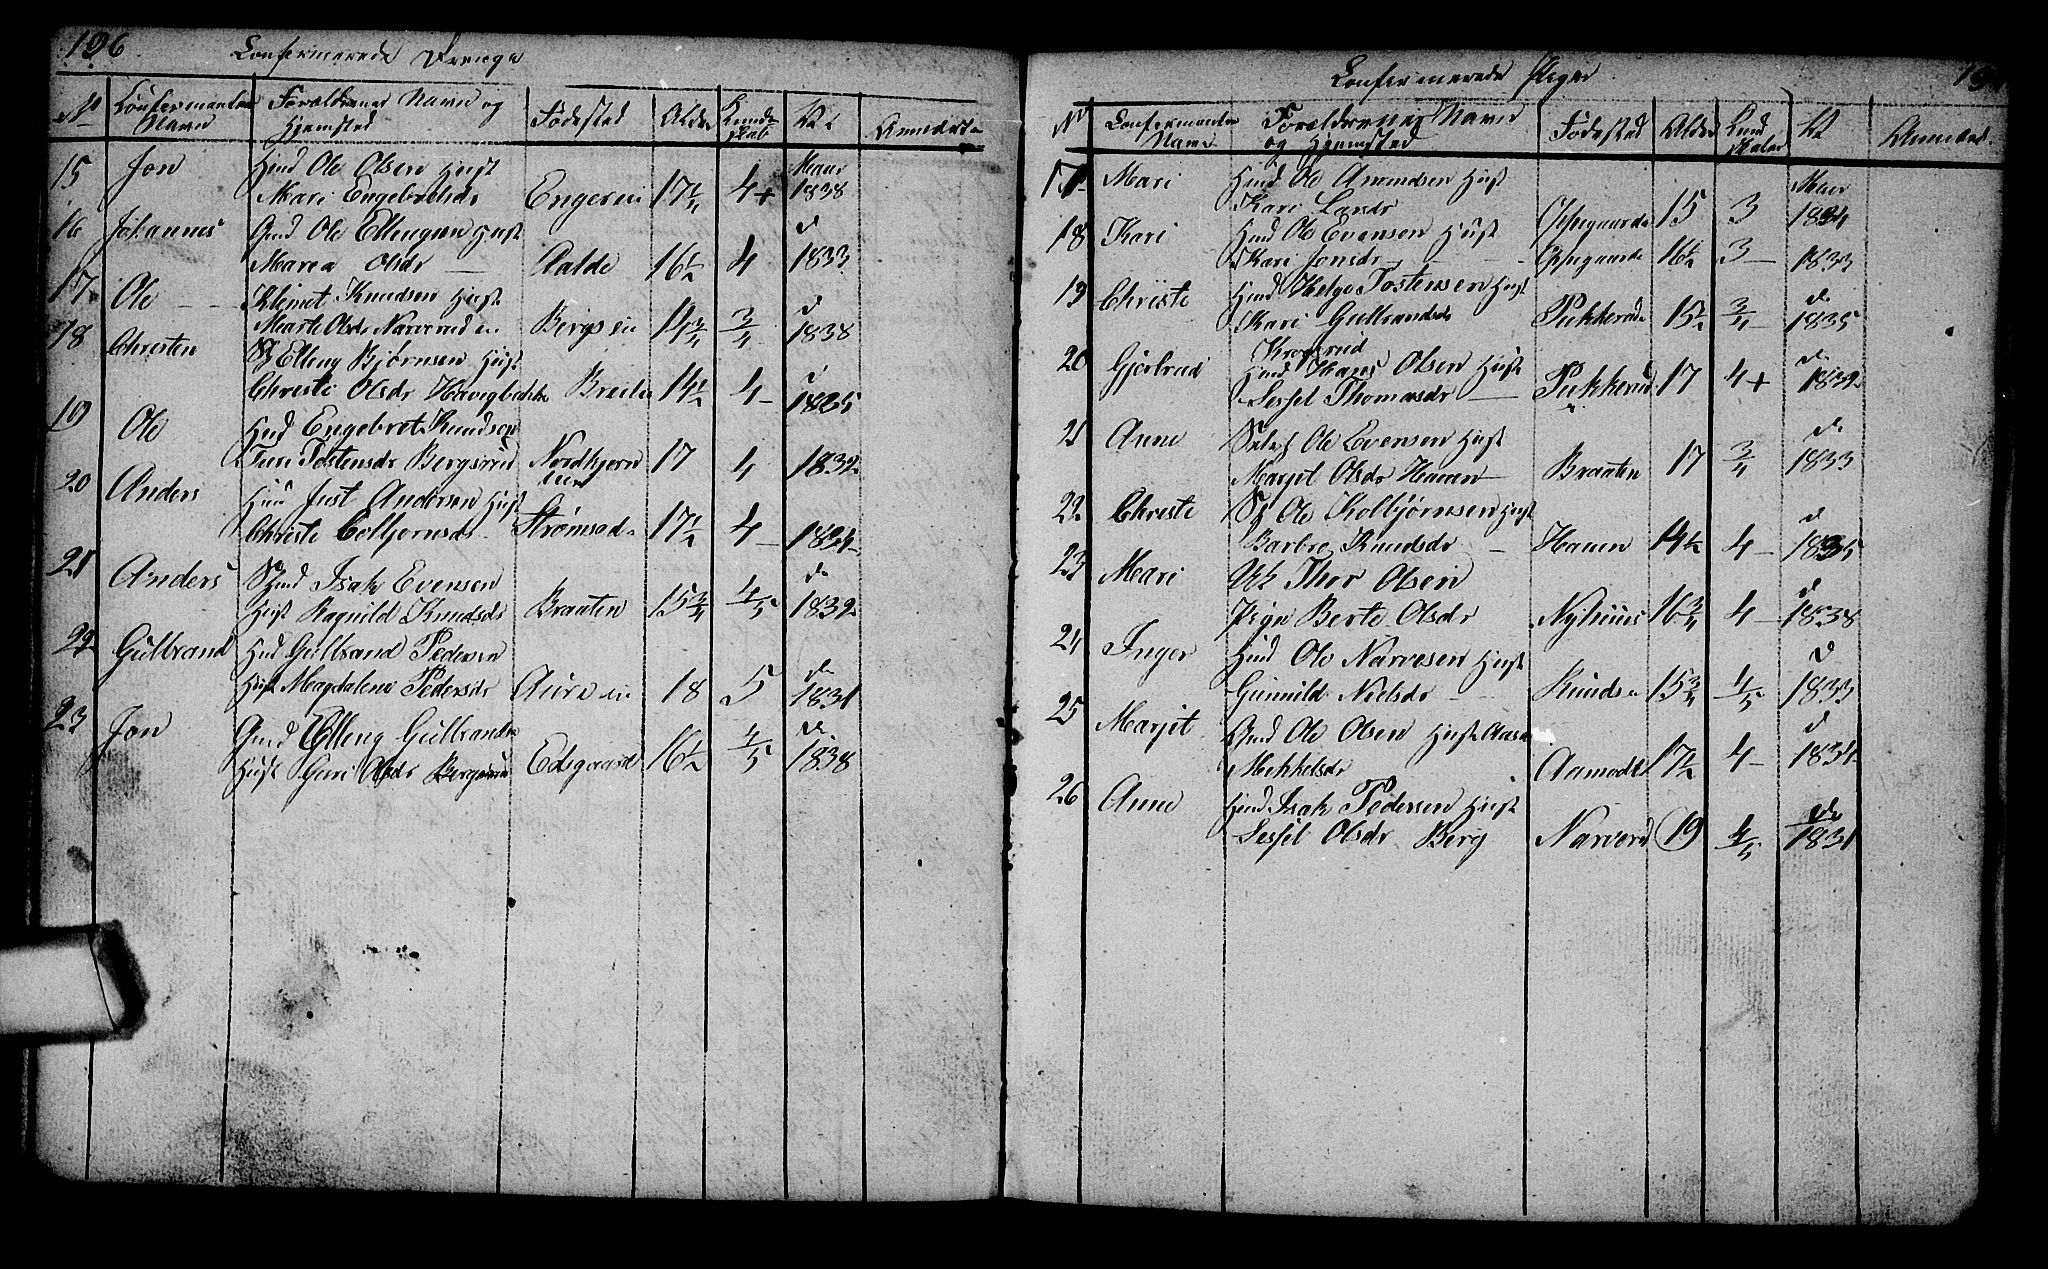 196
Confermerede Drenge
No
Confermanten Navn
Foreldrenes Navn og Hjemsted
Fødested
Alder
Kundskab
Va:
Anmerk
15 Jon Hmd Ole Olsen Hust
Mari Engebretsdr Engeren 17½ 4+ Maur 1838
16 Johannes Gmd Ole Ellengsen Hust
Marea Olsdr Aalde 16½ 4 d 1833
17 Ole Klemet Knudsen Hust
Marte Olsdr Narverud Bergs 14¾ 3/4 d 1838
18 Christen Elleng Bjørnsen Hust
Christi Olsdr Brelie 14½ 4- 1835
19 Ole Hmd Engebret Knudsen
Turi Tostensdr Bergsrud Nordkjern 17 4 1832
20 Anders Just Andersen Hust
Christe Colbjornsd Strømsod 17½ 4- 1834
21 Anders Isak Evensen
Hust Ragnild Knudsdr Braaten 15¾ 4/5 d 1832
22 Gulbrand Hmd Gulbrand Pedersen
Hust Magdalene Pedersdr Aure 18 5 d 1831
23 Jon Gmd Elleng Gulbrands
Hust Guri Olsdr Bergsrud Edsgaard 16½ 4/5 d 1838
Confermerede Piger
No
Confermanten Navn
Foreldrenes Navn og Hjemsted
Fødested
Alder
Kundskaber
Va
Anmerk
17 Mari Hmd Ole Amundsen Hust
Kari Larsdr Oppegaarde 15 3 Maur 1834
18 Kari Hmd Ole Evensen Hust
Kari Jonsdr Oppegaarde 16½ 3- 1833
19 Christe Hmd Helge Tostensen Hust
Kari Gulbrandsdr Pukkerud 15½ 3/4 d 1835
20 Gjertrud Hmd Hans Olsen Hust
Sessel Thomasdr Pukkerud 17 4+ d 1832
21 Anne Selv Ole Evensen Hust
Marjit Olsdr Hauen Braaten 17 3/4 d 1833
22 Christe Ole Kolbjørnsen Hust
Barbro Knudsdr Hauen 14½ 4- d 1835
23 Mari Uk Thor Olsen
Pign Berte Olsdr Nyhuus 16¾ 4- d 1838
24 Inger Hmd Ole Narvesen Hust
Gunnild Nielsdr Knuds 15¾ 4/5 d 1833
25 Marjit Gmd Ole Olsen Hust Aase
Mekkelsdr Aamodt 17½ 4- d 1834
26 Anne Hmd Isak Pedersen Hust
Sessel Olsdr Berg Narverd 19 4/5 d 1831